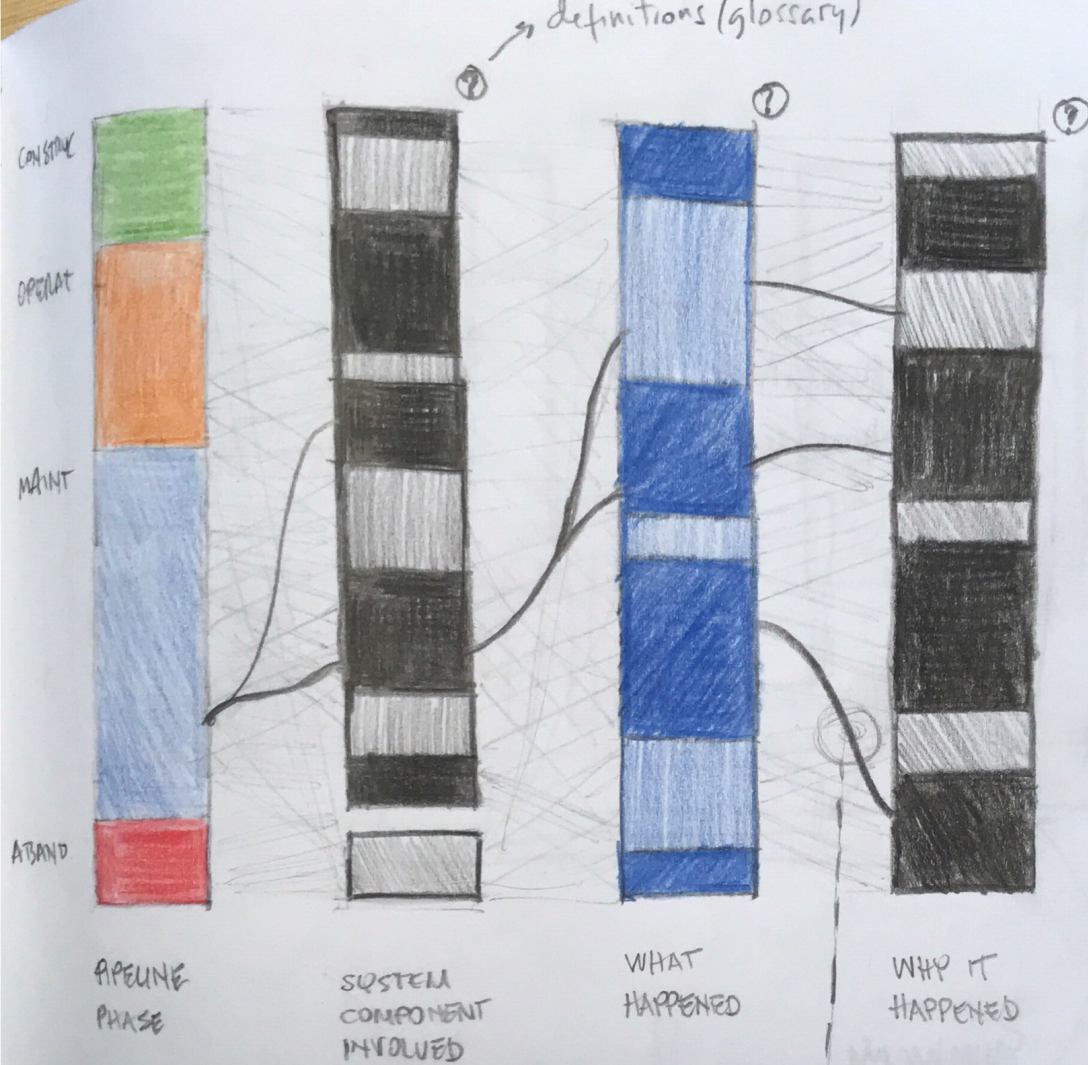 definitions (glossary)
?
?
?
CONSTRUC
OPERAT
MAINT
ABAND
PIPELINE
PHASE
SYSTEM
COMPONENT
INVOLVED
WHAT
HAPPENED
WHY IT
HAPPENED